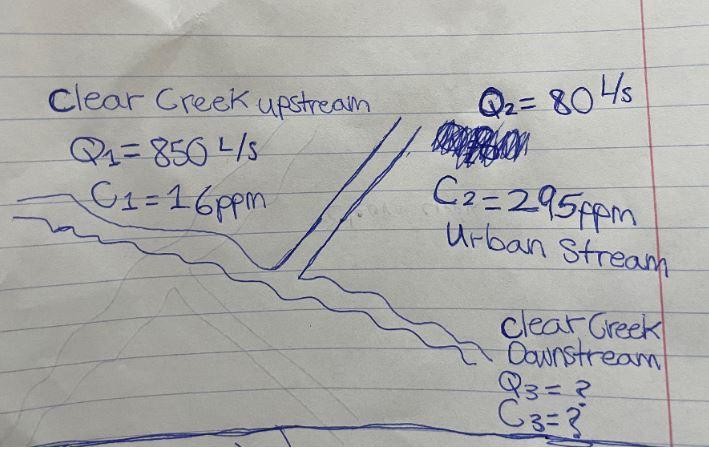 Clear Creek upstream
Q1 = 850 L/s
C1 = 16ppm
Q2 = 80 L/s
C2 = 295ppm
Urban Stream
Clear Creek
Downstream
Q3 = ?
C3 = ?